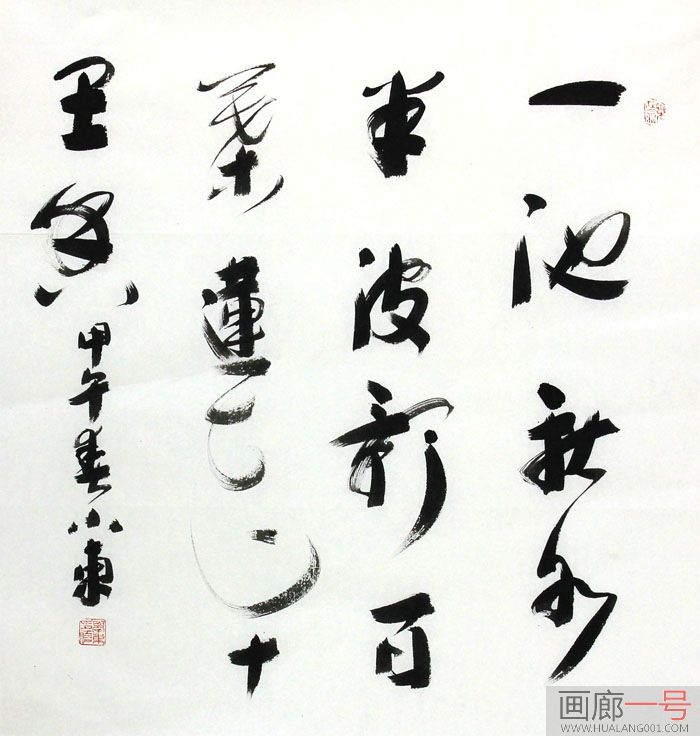 一池秋水
半波影百
葉蓮花十
里香
甲午春小東
画廊一号
WWW.HUALANG001.COM